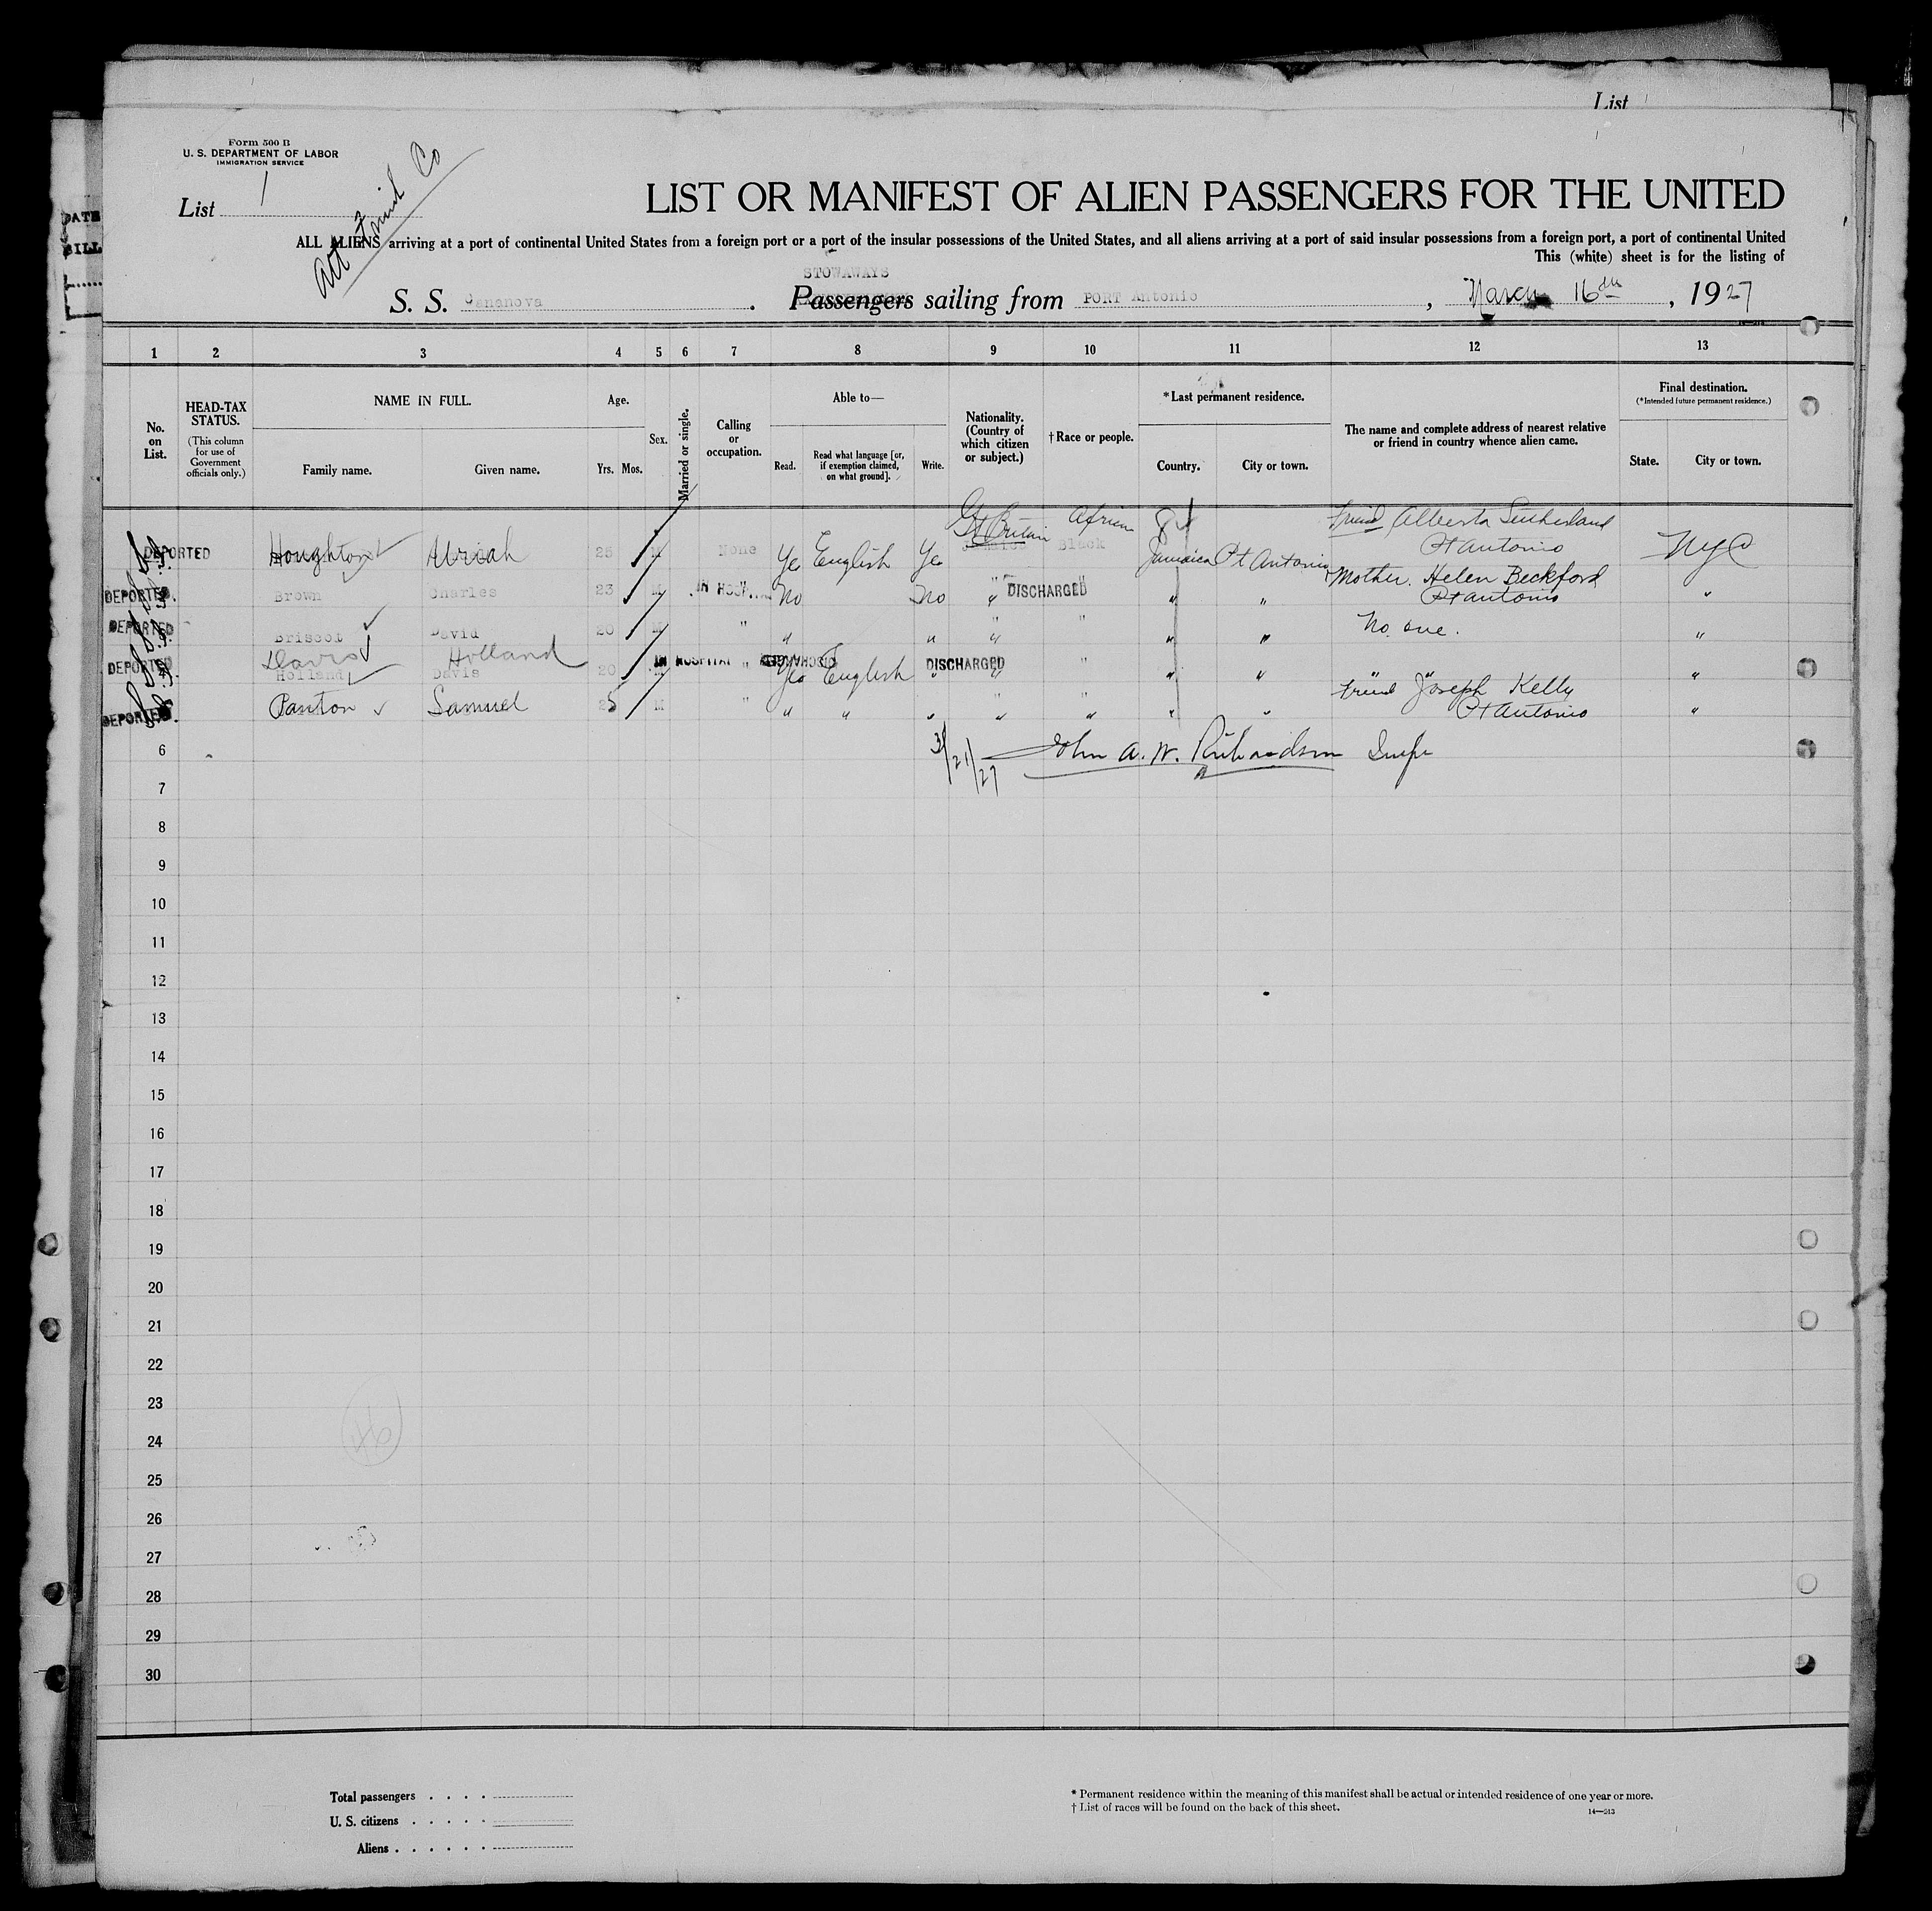 List
Form 500 B
U. S. DEPARTMENT OF LABOR
IMMIGRATION SERVICE
List 1
Fruit Co
DATE
BILL
LIST OR MANIFEST OF ALIEN PASSENGERS FOR THE UNITED
ALL ALIENS arriving at a port of continental United States from a foreign port or a port of the insular possessions of the United States, and all aliens arriving at a port of said insular possessions from a foreign port, a port of continental United
This (white) sheet is for the listing of
STOWAWAYS
S. S. Cananova. Passengers sailing from PORT Antonio, March 16th, 1927
1 2 3 4 5 6 7 8 9 10 11 12 13
No. on List.
HEAD-TAX STATUS.
(This column for use of Government officials only.)
NAME IN FULL.
Family name. Given name.
Age.
Yrs. Mos.
Sex.
Married or single.
Calling or occupation.
Able to—
Read. Read what language [or, if exemption claimed, on what ground]. Write.
Nationality. (Country of which citizen or subject.)
† Race or people.
* Last permanent residence.
Country. City or town.
The name and complete address of nearest relative or friend in country whence alien came.
Final destination.
(* Intended future permanent residence.)
State. City or town.
Gt Britain African Friend Alberta Sutherland
DEPORTED Houghton Uriah 25 M None Yes English Yes Jamaica Black Jamaica Pt Antonio Pt Antonio NYC
Mother. Helen Beckford
DEPORTED. Brown Charles 23 M IN HOSPITAL " No No " DISCHARGED " " " Pt Antonio "
DEPORTED Briscot David 20 M " " " " " " " No one. "
Davis Holland
DEPORTED Holland Davis 20 M IN HOSPITAL " DISCHARGED Yes English " DISCHARGED " " " " " "
Friend Joseph Kelly
DEPORTED. Panton Samuel 25 M " " " " " " " " Pt Antonio "
6 3/21/27 John A. W. Richardson Insp
7
8
9
10
11
12
13
14
15
16
17
18
19
20
21
22
23
24
25
26
27
28
29
30
Total passengers . . . .
U. S. citizens . . . . .
Aliens . . . . . .
* Permanent residence within the meaning of this manifest shall be actual or intended residence of one year or more.
† List of races will be found on the back of this sheet.
14—213